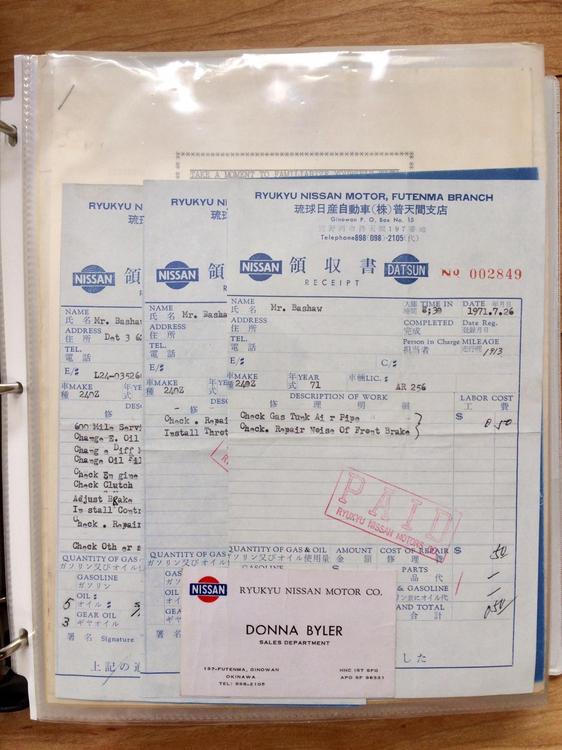 TAKE A MOMENT TO FAMILIARIZE YOURSELF
RYUKYU NISSAN
琉
NISSAN
領
NAME
氏名 Mr. Bashaw
ADDRESS
住所 Det 3
TEL.
電話
E/# L24-03526
車MAKE
種 240Z
修
600 Mile Servi
Change E. Oil
Change Diff
Change Oil Fil
Check Engine
Check Clutch
Adjust Brake
Install Contr
Check. Repair
Check Other
QUANTITY OF GAS
ガソリン及びオイル
GASOLINE
ガソリン
OIL:
5 オイル:
GEAR OIL
3 ギヤオイル
署名 Signature
上記の
RYUKYU
琉
NISSAN
領
NAME
氏名 Mr. Basha
ADDRESS
住所
TEL.
電話
E/#
車MAKE
種 240Z
修
Check. Repai
Install Thro
QUANTITY OF
ガソリン及び
RYUKYU NISSAN MOTOR, FUTENMA BRANCH
琉球日産自動車(株)普天間支店
Ginowan P. O. Box No. 15
Telephone 898(098)-2105(代)
NISSAN 領収書 DATSUN No 002849
RECEIPT
NAME
氏名 Mr. Bashaw
TIME IN 8:30
DATE 年月日 1971.7.26
ADDRESS
住所
COMPLETED
完成
Date Reg.
登録月日
TEL.
電話
Person in Charge
担当者
MILEAGE
1913
E/# C/#
車MAKE
種 240Z
年YEAR
式 71
車輌LIC.# AR 256
DESCRIPTION OF WORK
修理明細
LABOR COST
工費
Check Gas Tank Air Pipe $
Check. Repair Noise Of Front Brake 0.50
PAID
RYUKYU NISSAN MOTORS
QUANTITY OF GAS & OIL AMOUNT COST OF REPAIR $ .50
ガソリン及オイル使用量 金額 修理費
PARTS
品代 —
& GASOLINE —
AND TOTAL
合計 0.50
した
NISSAN
RYUKYU NISSAN MOTOR CO.
DONNA BYLER
SALES DEPARTMENT
197-FUTENMA, GINOWAN
OKINAWA
TEL: 898-2105
HHC 1ST SFG
APO SF 96331